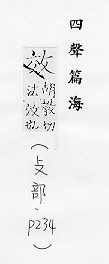 四聲篇海
胡教切
法效也
(攴部.p234)